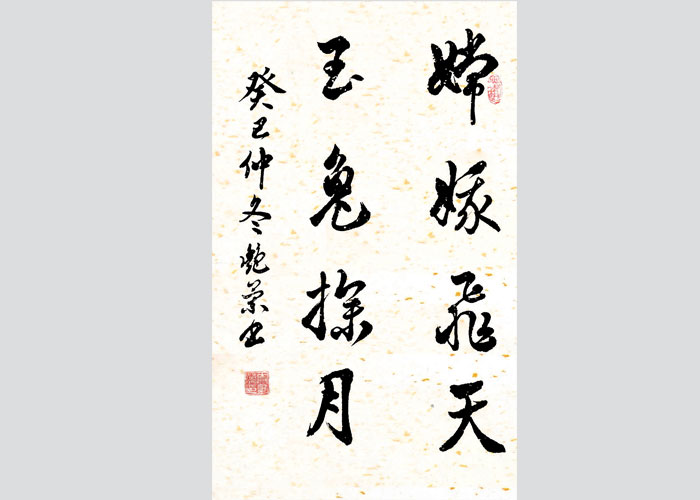 嫦娥飛天
玉兔探月
癸巳仲冬艷荣书